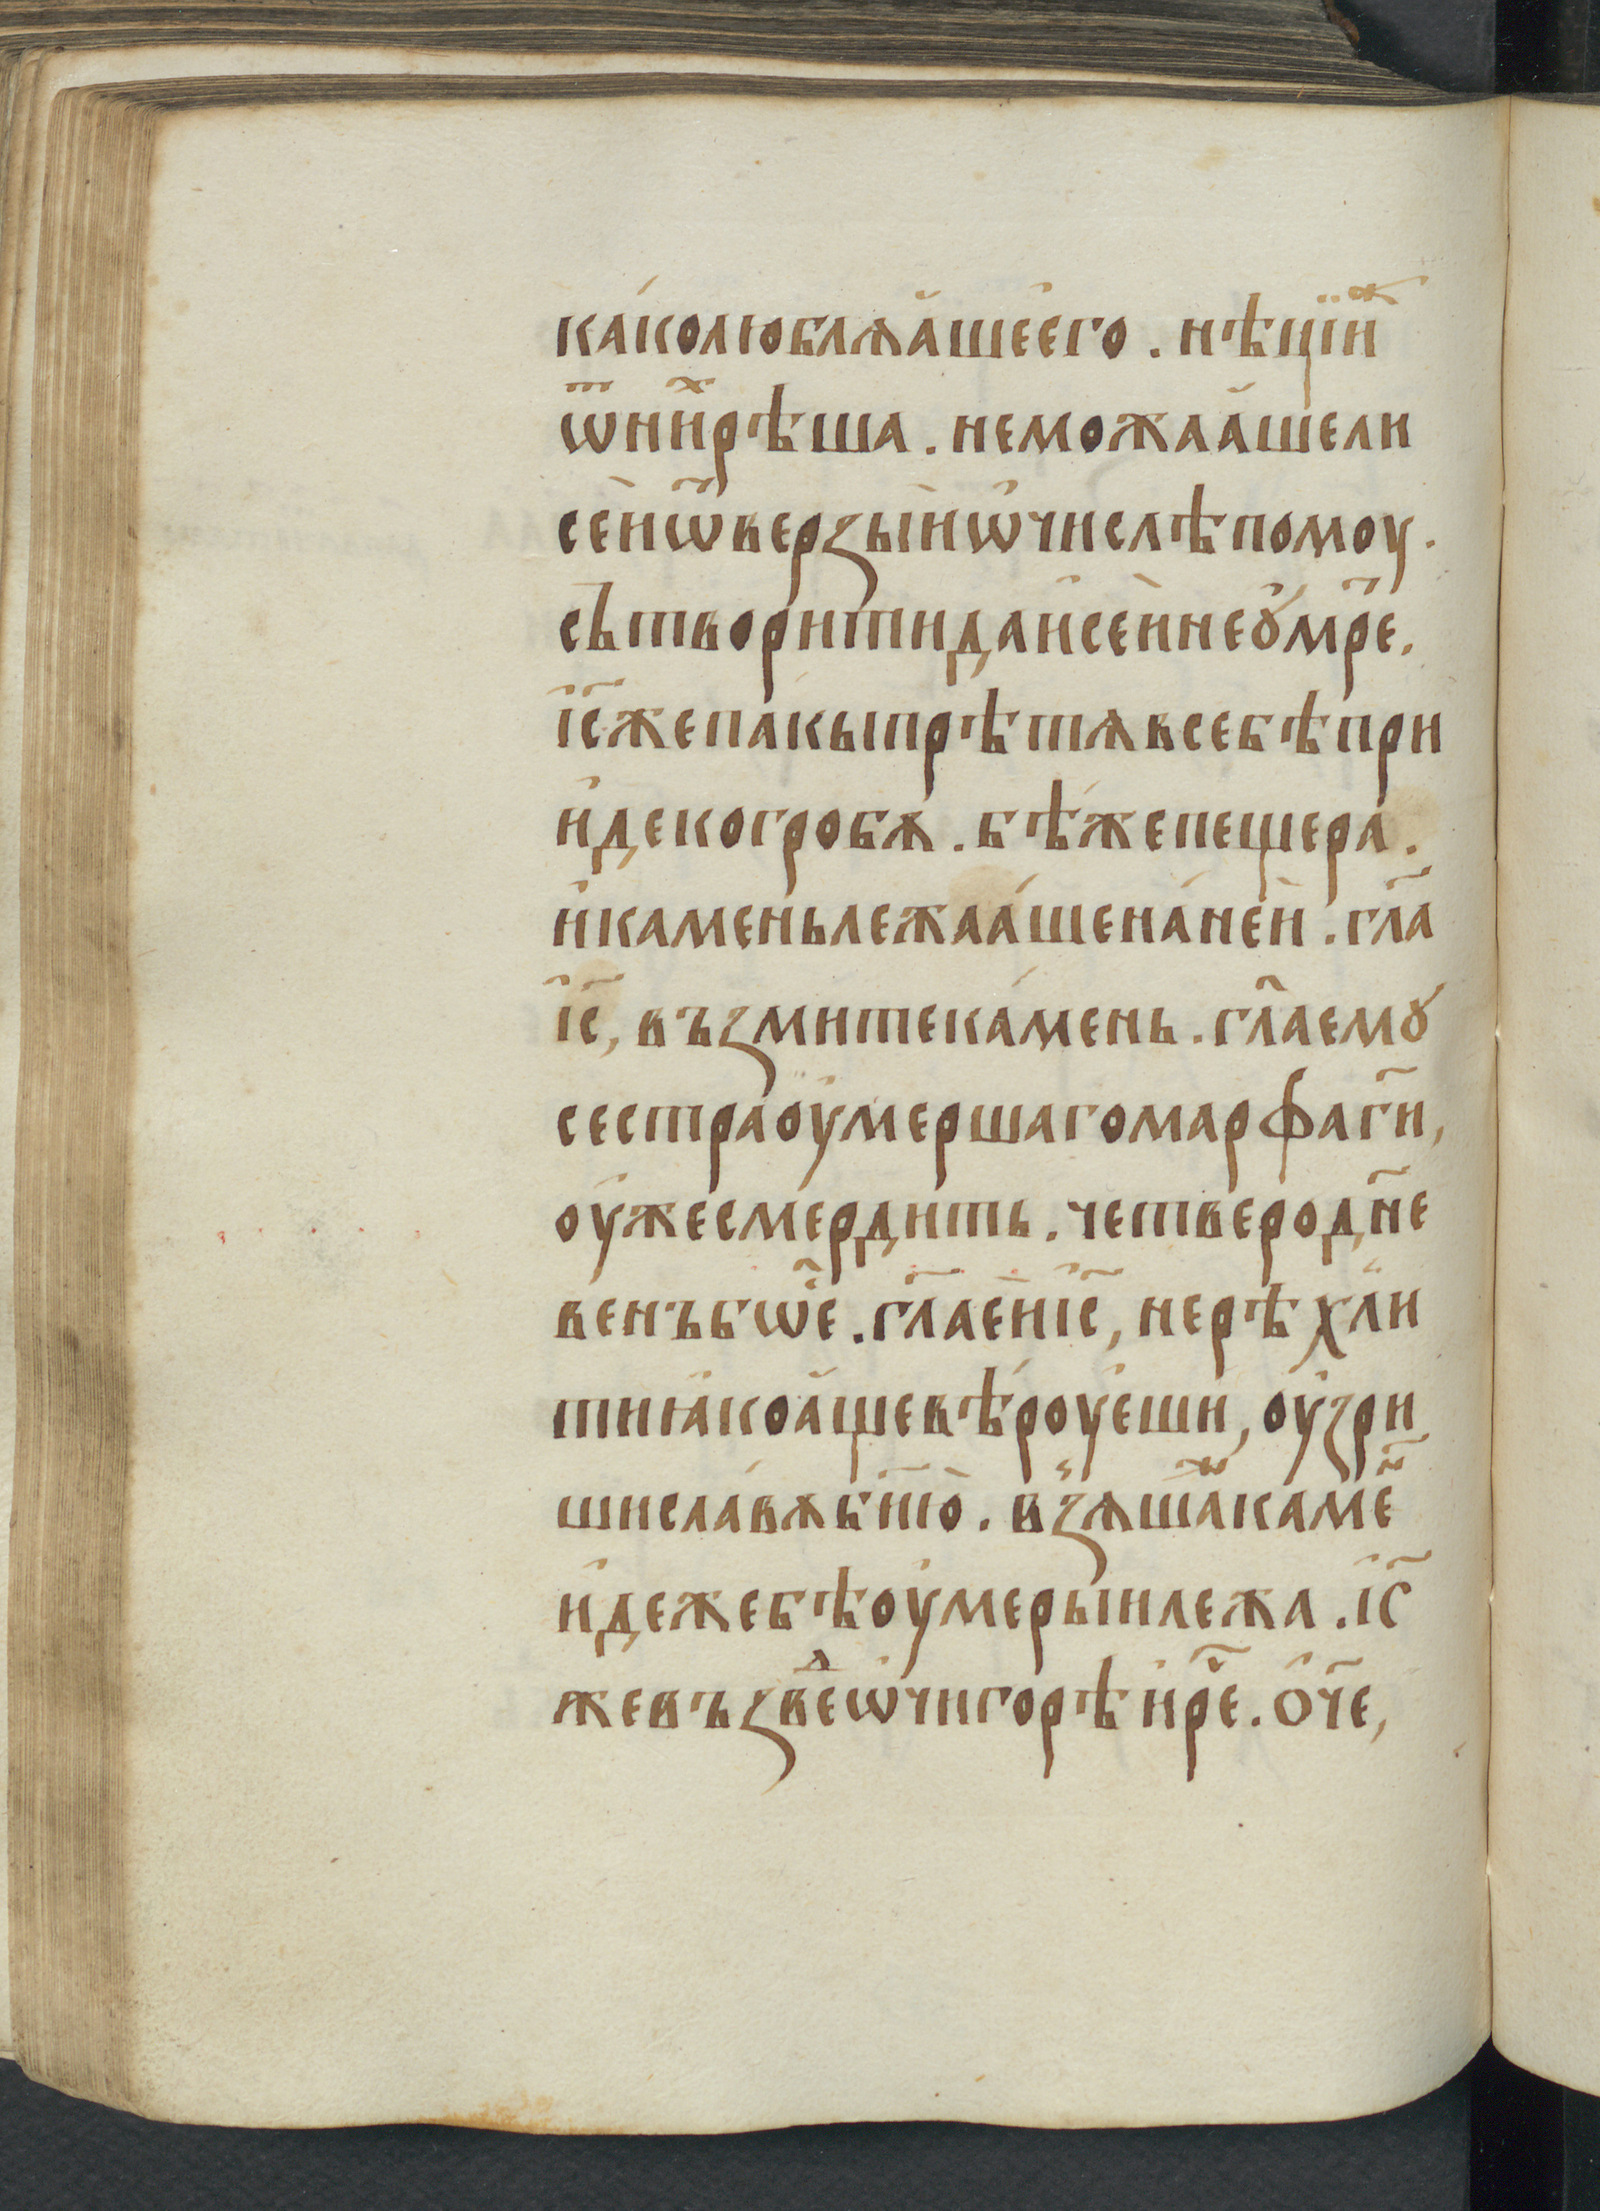 ка́колюблѧ̆ашеего . нѣцїиⷤ
ѿниⷯрѣша . неможаӑшели
се́иѿверꙁыиѡ҆числѣпомоу .
сътворитидаисе́инеꙋмр҃е .
і҆с҃жепа́кыпрѣтѧвсебѣпри
и҆декогробѧ . бѣ́жепещера .
и҆каменьлежаа́шена́не́и . гл҃а
і҆с҃, въꙁмитека́мень . гл҃аемꙋ
сестраоу҆мершагомарфаги҃,
оу҆жесмердить . четверодн҃е
венъбѡ҆е́ . гл҃ае́иі҆с҃, нерѣхли
тиꙗ҆коа҆щевѣ́роуеши, оу҆ꙁри
шисла́вѧбж҃їю . вꙁѧшаⷤкамеⷩ
и҆дежебѣоу҆мерыилежа . і҆с҃
жевъꙁвеⷣѡ҆чигорѣи҆р҃е . ѻ҆ч҃е,